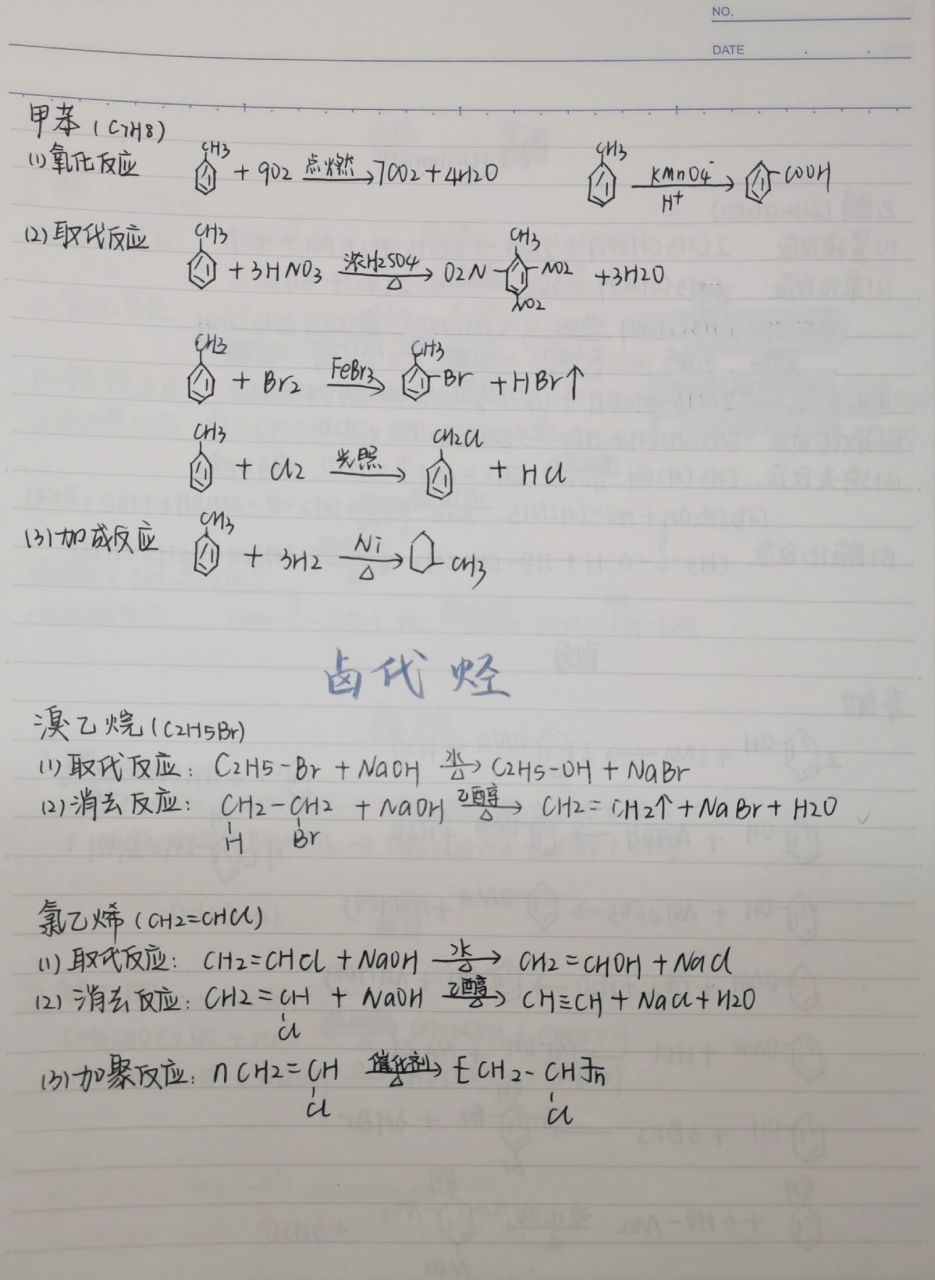 NO.
DATE
甲苯(C7H8)
(1)氧化反应 CH3 + 9O2 点燃→ 7CO2+4H2O CH3 KMnO4 H+ → COOH
(2)取代反应 CH3 + 3HNO3 浓H2SO4 △ → O2N CH3 NO2 NO2 +3H2O
CH3 + Br2 FeBr3 → CH3 Br +HBr↑
CH3 + Cl2 光照→ CH2Cl + HCl
(3)加成反应 CH3 + 3H2 Ni △ → CH3
卤代烃
溴乙烷(C2H5Br)
(1)取代反应: C2H5-Br + NaOH 水 △ → C2H5-OH + NaBr
(2)消去反应: CH2-CH2 + NaOH 乙醇 △ → CH2=CH2↑+NaBr+H2O
H Br
氯乙烯(CH2=CHCl)
(1)取代反应: CH2=CHCl + NaOH 水 △ → CH2=CHOH + NaCl
(2)消去反应: CH2=CH + NaOH 乙醇 △ → CH≡CH + NaCl+H2O
Cl
(3)加聚反应: nCH2=CH 催化剂 △ → [CH2-CH]n
Cl Cl